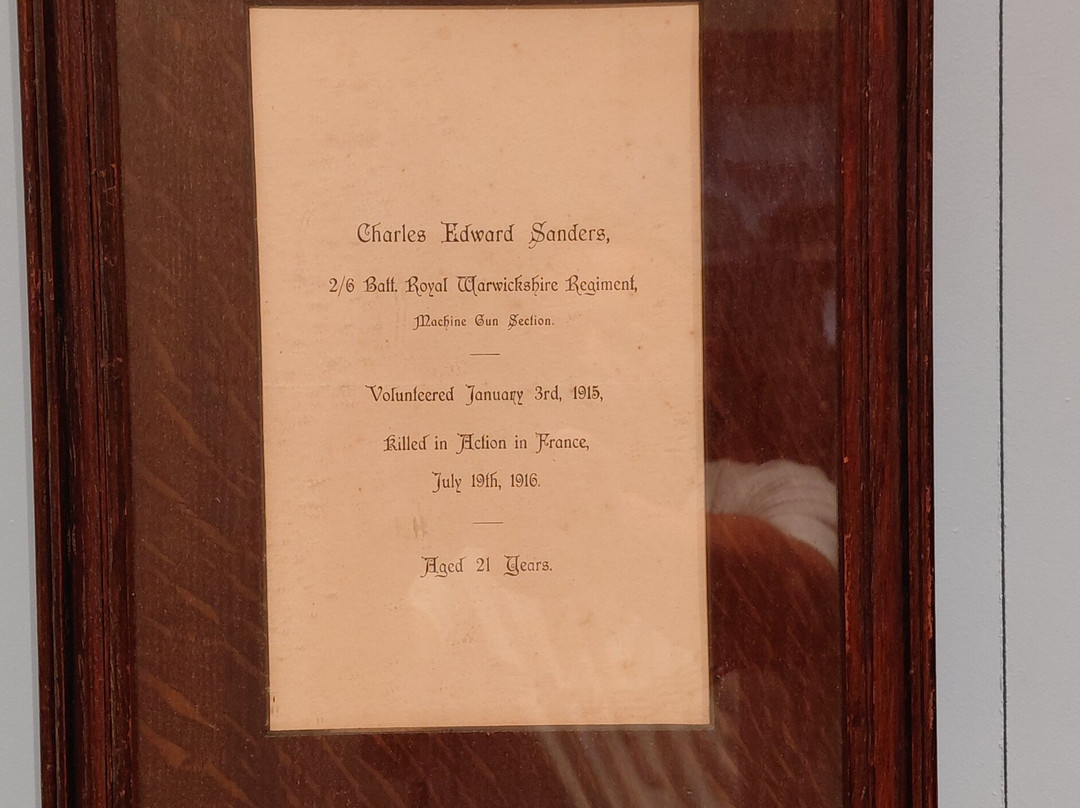 Charles Edward Sanders,
2/6 Batt. Royal Warwickshire Regiment,
Machine Gun Section.
Volunteered January 3rd, 1915,
Killed in Action in France,
July 19th, 1916.
Aged 21 Years.